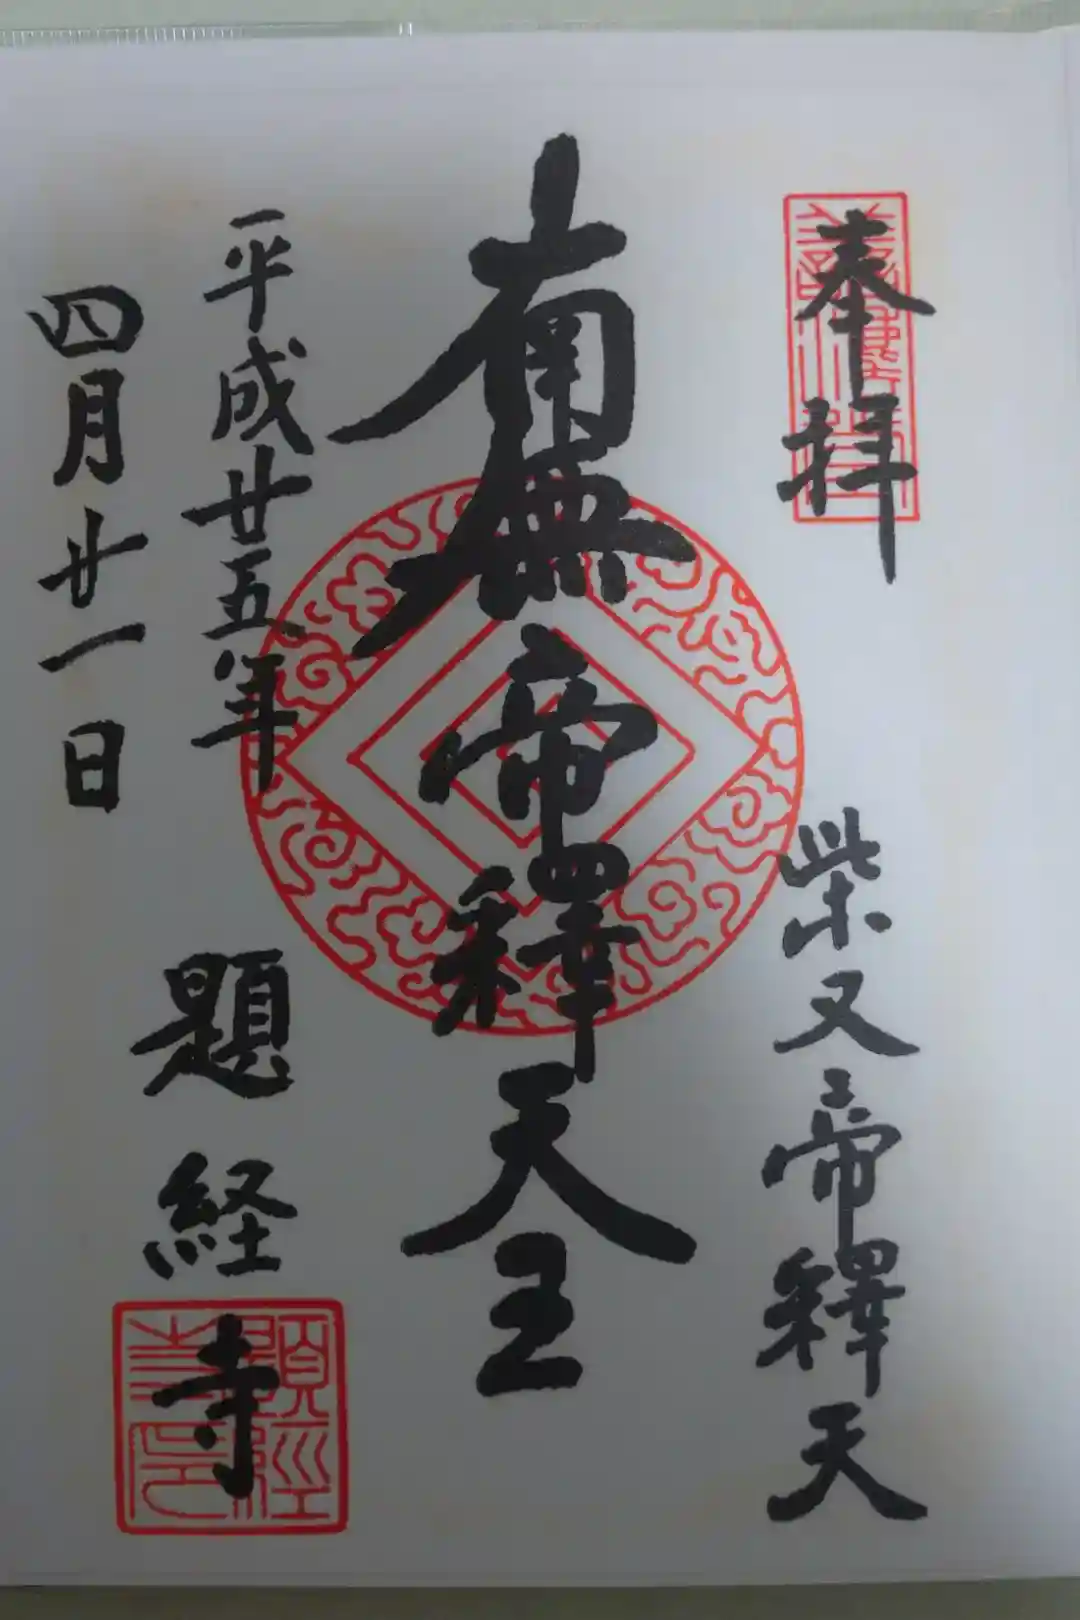 奉拝
柴又帝釋天
南無帝釋天王
平成廿五年
四月廿一日
題経寺
題經寺印